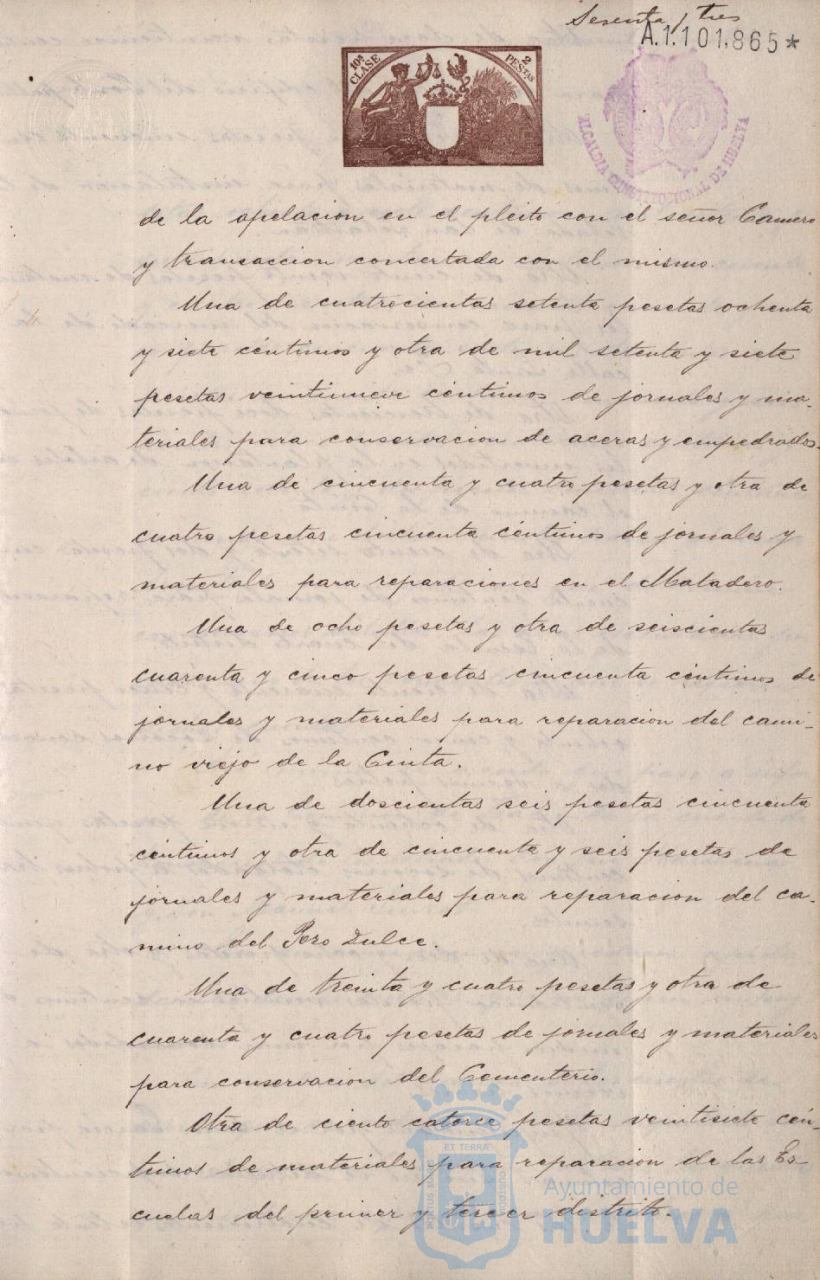 Sesenta y tres
A.1.101.865*
10ª CLASE
2 PESTAS
ALCALDIA CONSTITUCIONAL DE HUELVA
de la apelacion en el pleito con el señor Camero
y transaccion concertada con el mismo.
Una de cuatrocientas setenta pesetas ochenta
y siete céntimos y otra de mil setenta y siete
pesetas veintinueve céntimos de jornales y ma-
teriales para conservacion de aceras y empedrados.
Una de cincuenta y cuatro pesetas y otra de
cuatro pesetas cincuenta céntimos de jornales y
materiales para reparaciones en el Matadero.
Una de ocho pesetas y otra de seiscientas
cuarenta y cinco pesetas cincuenta céntimos de
jornales y materiales para reparacion del cami-
no viejo de la Cinta.
Una de doscientas seis pesetas cincuenta
céntimos y otra de cincuenta y seis pesetas de
jornales y materiales para reparacion del ca-
mino del Pozo Dulce.
Una de treinta y cuatro pesetas y otra de
cuarenta y cuatro pesetas de jornales y materiales
para conservacion del Cementerio.
Otra de ciento catorce pesetas veintisiete cén-
timos de materiales para reparacion de las Es
cuelas del primer y tercer distrito.
ET TERRÆ
Ayuntamiento de
HUELVA